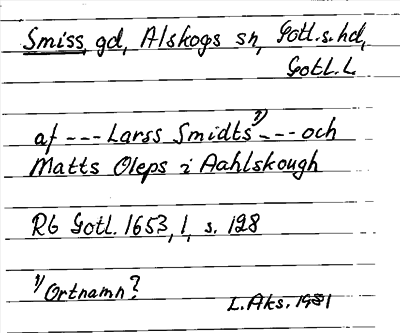 Smiss, gd, Alskogs sn, Gotl.s.hd,
Gotl.L.
af --- Larss Smidts ¹) --- och
Matts Oleps i Aahlskough
RG Gotl. 1653, 1, s. 128
¹) Ortnamn?
L.Aks. 1981